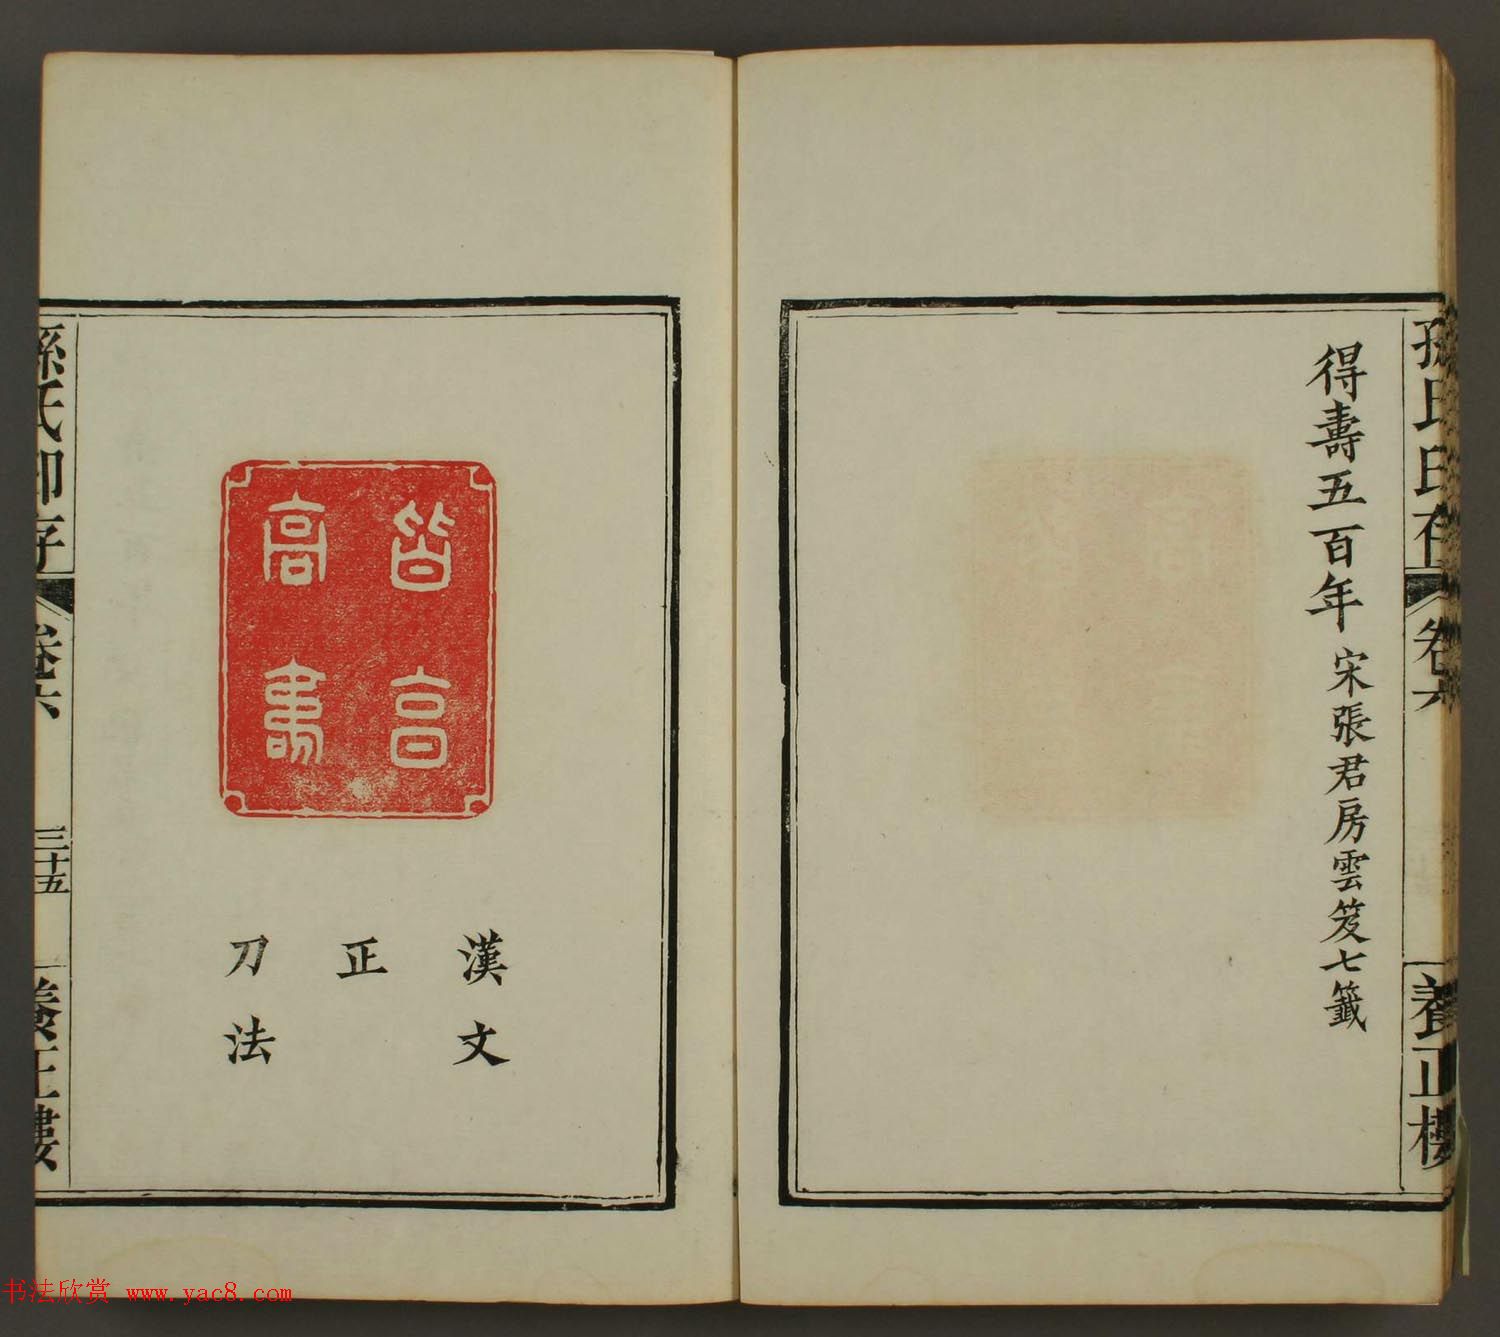 孫氏印存 卷六 養正樓
得壽五百年 宋張君房雲笈七籤
皆亯
高壽
漢文
正
刀法
孫氏印存 卷六 三十五 養正樓
书法欣赏 www.yac8.com